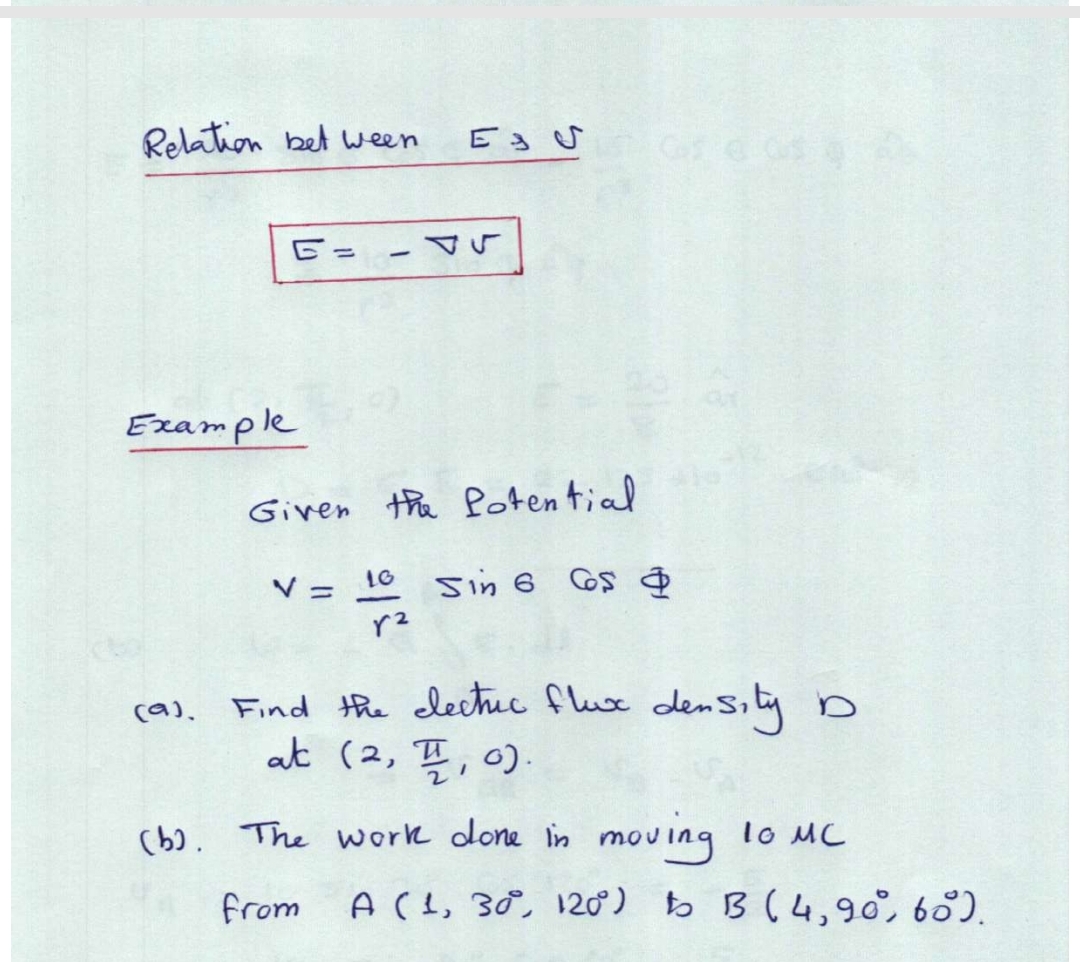 Relation between E & V
E = - ∇V
Example
Given the Potential
V = 10/r² Sin θ Cos Φ
(a). Find the electric flux density D
at (2, π/2, 0).
(b). The work done in moving 10 μC
from A (1, 30°, 120°) to B (4, 90°, 60°).